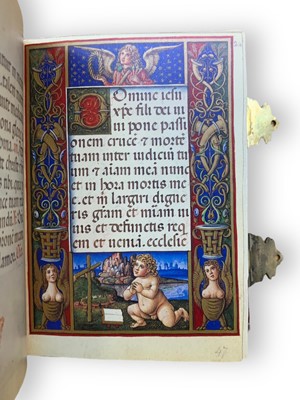 Domine iesu
xpe fili dei ui
ui pone passi
onem crucē & mortē
tuam inter iudiciū tu
ū & aīam meā nunc
et in hora mortis me
e. et m̄ largiri digne
ris grām et mīam ui
uis et defunctis req
em et uenia. ecclesie
47